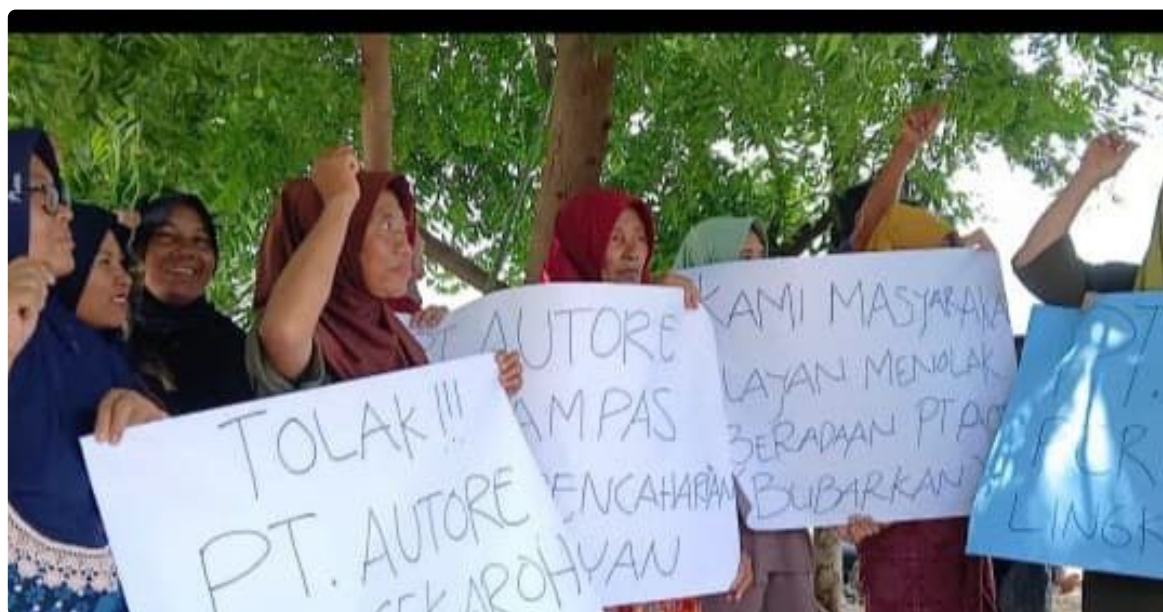 TOLAK!!!
PT. AUTORE
SEKAROH
AUTORE
AMPAS
ENCAHARIAN
AYAN
KAMI MASYARAKA
LAYAN MENOLAK
BERADAAN PT AUT
BUBARKAN
PT.
LINGK